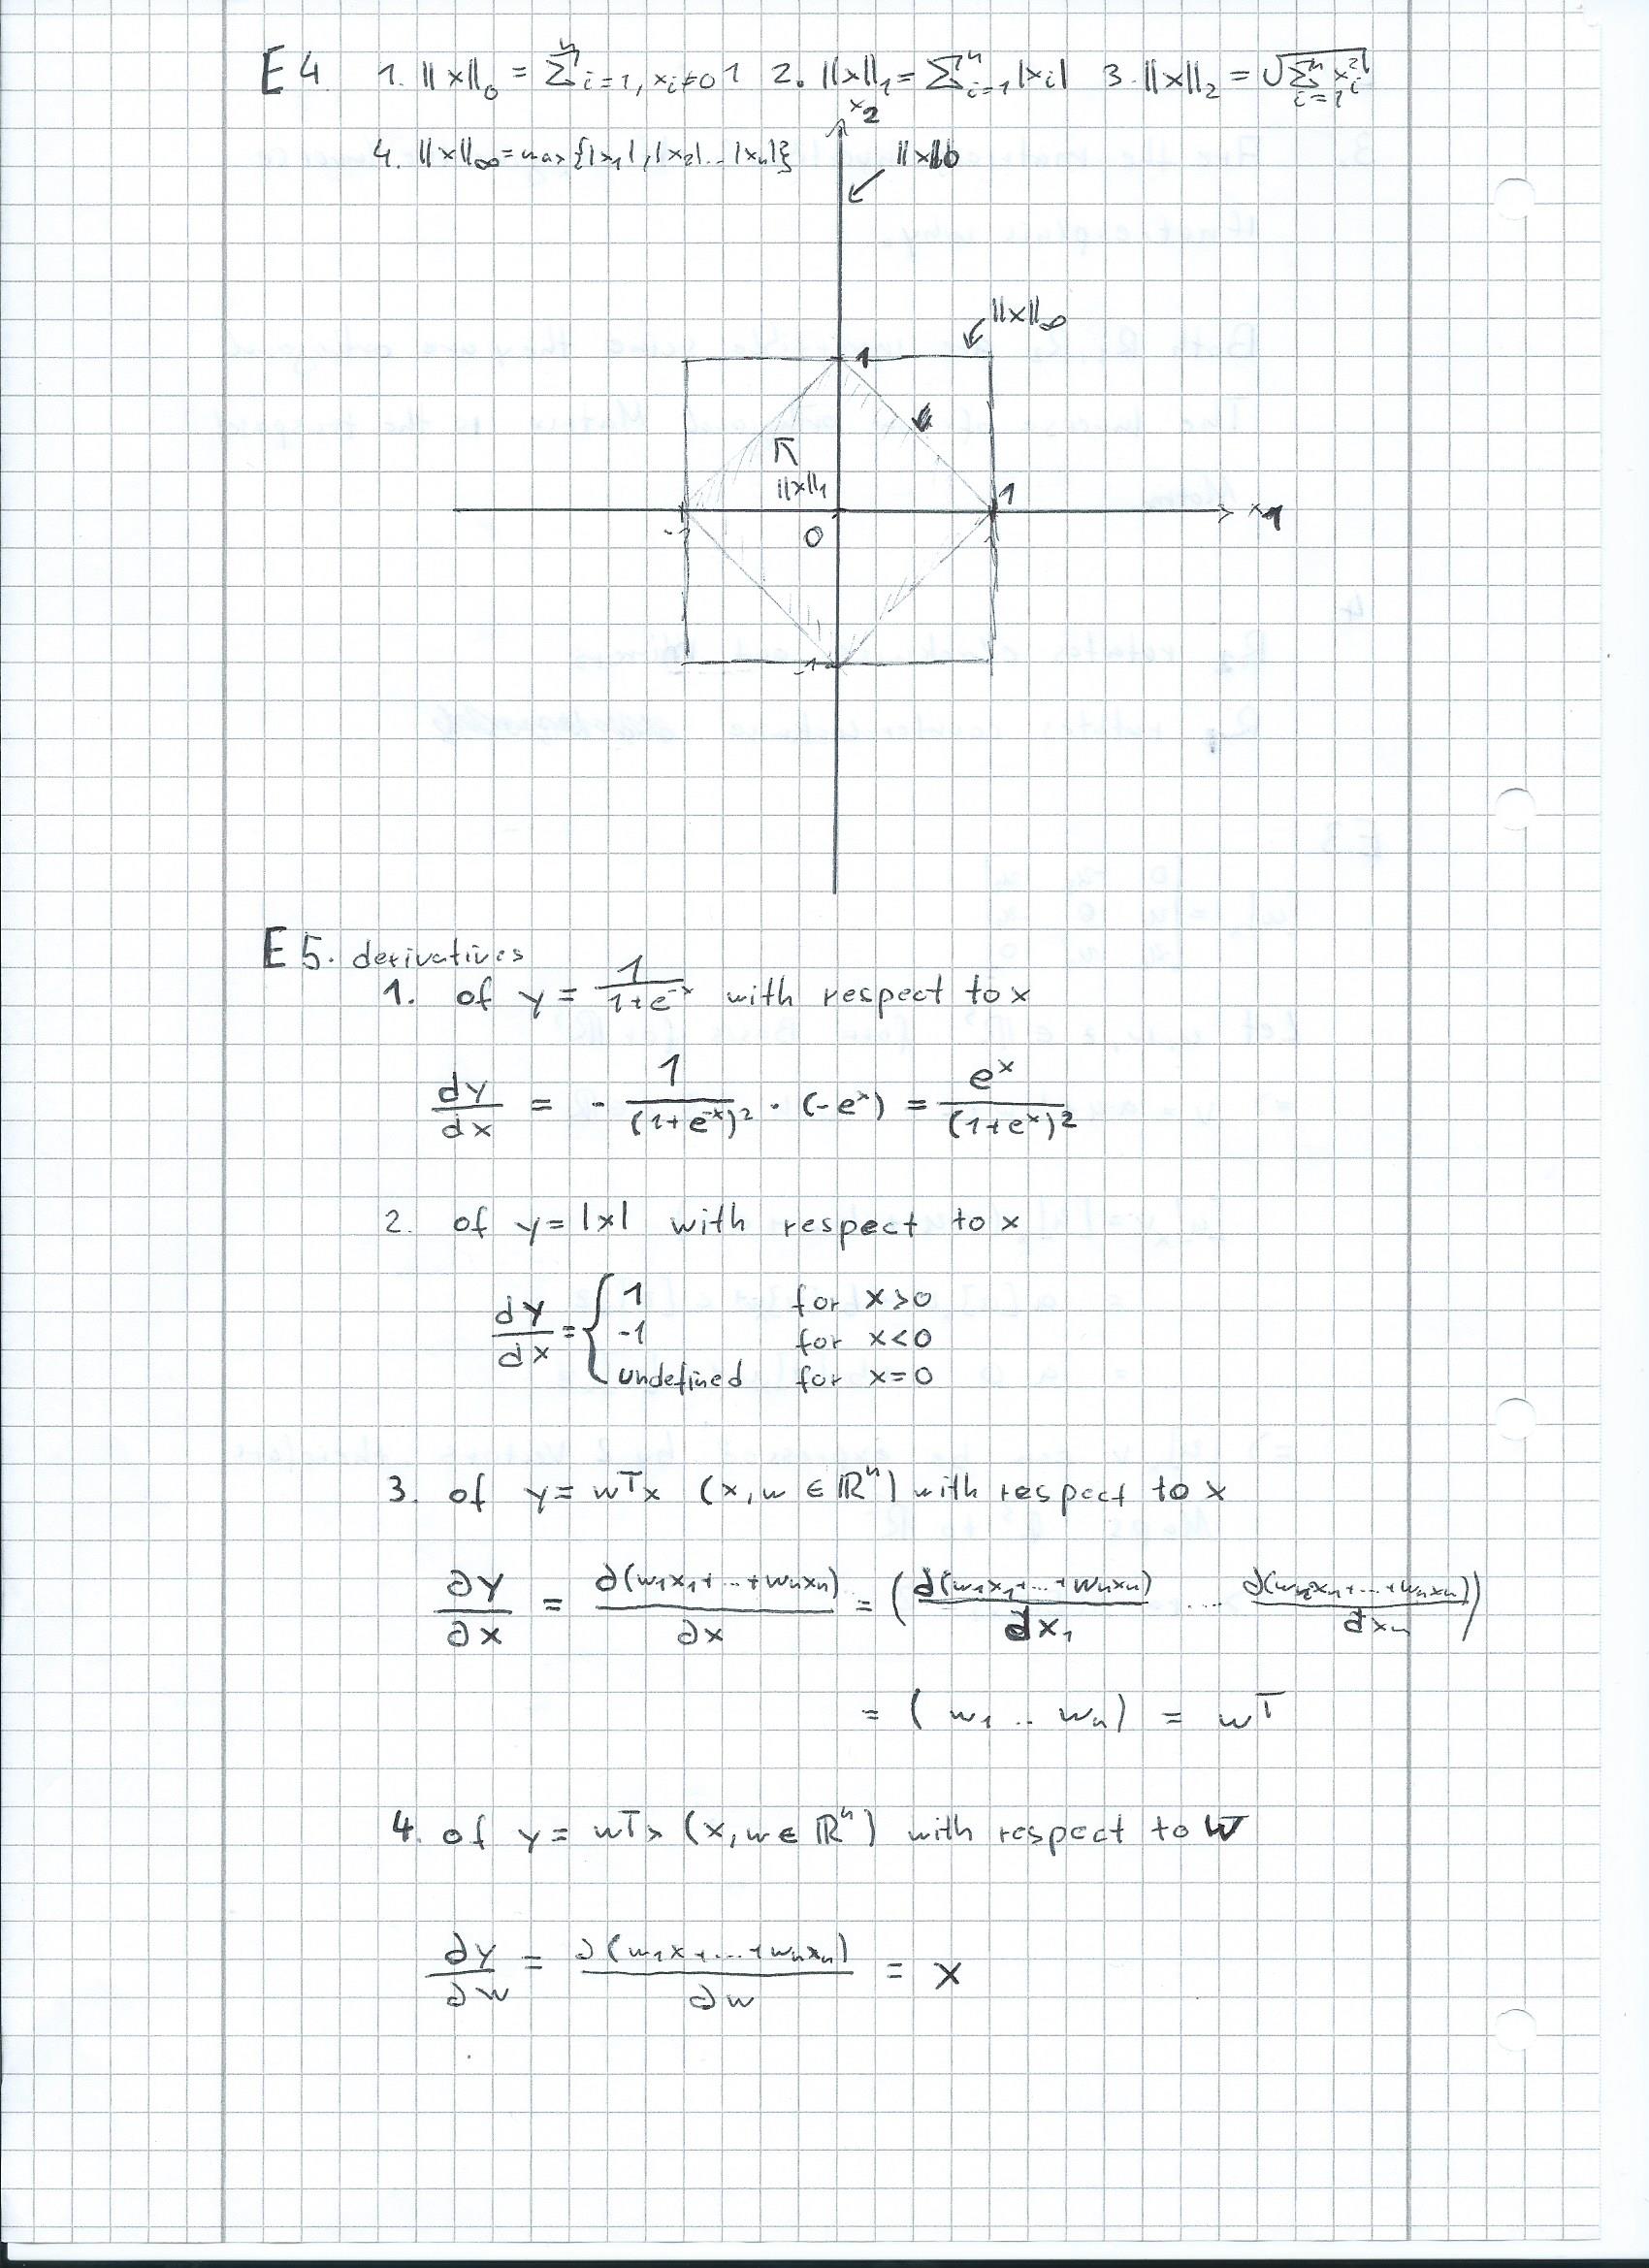 E4 1. ||x||₀ = Σⁿ i=1, xᵢ≠0 1 2. ||x||₁ = Σⁿᵢ₌₁ |xᵢ| 3. ||x||₂ = √(Σⁿᵢ₌₁ xᵢ²)
x₂
4. ||x||∞ = max{|x₁|, |x₂|...|xₙ|} ||x||0
||x||∞
1
||x||₁ 1
-1 0 x₁
-1
E5. derivatives
1. of y = 1/(1+e⁻ˣ) with respect to x
dy/dx = - 1/(1+e⁻ˣ)² · (-eˣ) = eˣ/(1+eˣ)²
2. of y = |x| with respect to x
dy/dx = { 1 for x>0
-1 for x<0
undefined for x=0
3. of y = wᵀx (x, w ∈ ℝⁿ) with respect to x
∂y/∂x = ∂(w₁x₁+...+wₙxₙ)/∂x = (∂(w₁x₁+...+wₙxₙ)/∂x₁ ... ∂(w₁x₁+...+wₙxₙ)/∂xₙ)
= (w₁ .. wₙ) = wᵀ
4. of y = wᵀx (x, w ∈ ℝⁿ) with respect to w
∂y/∂w = ∂(w₁x+...+wₙxₙ)/∂w = x